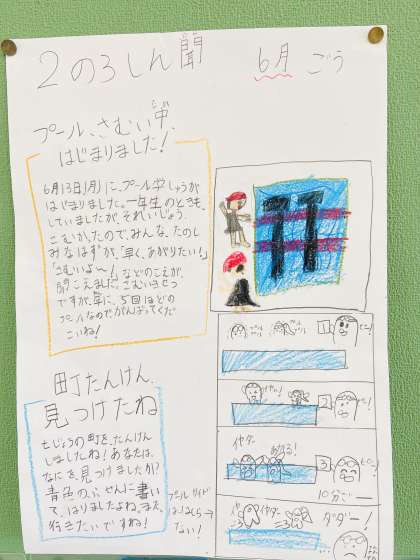 2の3しん聞
6月 ごう
プール、さむい中、
はじまりました!
6月13日(月)に、プール学しゅうが
はじまりました。一年生のときも、
していましたが、それいじょう、
さむかったので、みんな、たのし
みなはずが、「早く、あがりたい!」
「さむいよ〜!」などのこえが、
聞こえました。さむいきせつ
ですが、年に、5回ほどの
プールなのでがんばってくだ
さいね!
町たんけん、
見つけたね
もじょうの町を、たんけん
しましたね!あなたは、
なにを見つけましたか?
青色のふせんに書い
て、はりましたよね。また、
行きたいですね!
1
2
イヤダー
3
10分で
イヤダー
ダダー!
プールサイド
はしらない!